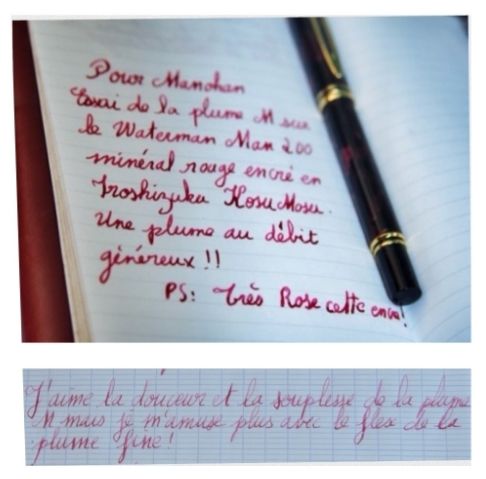 Pour Manohan
Essai de la plume M sur
le Waterman Man 200
minéral rouge encré en
Iroshizuku KosuMosu.
Une plume au débit
généreux !!
PS: Très Rose cette encre!
J'aime la douceur et la souplesse de la plume
M mais je m'amuse plus avec le flex de la
plume fine!